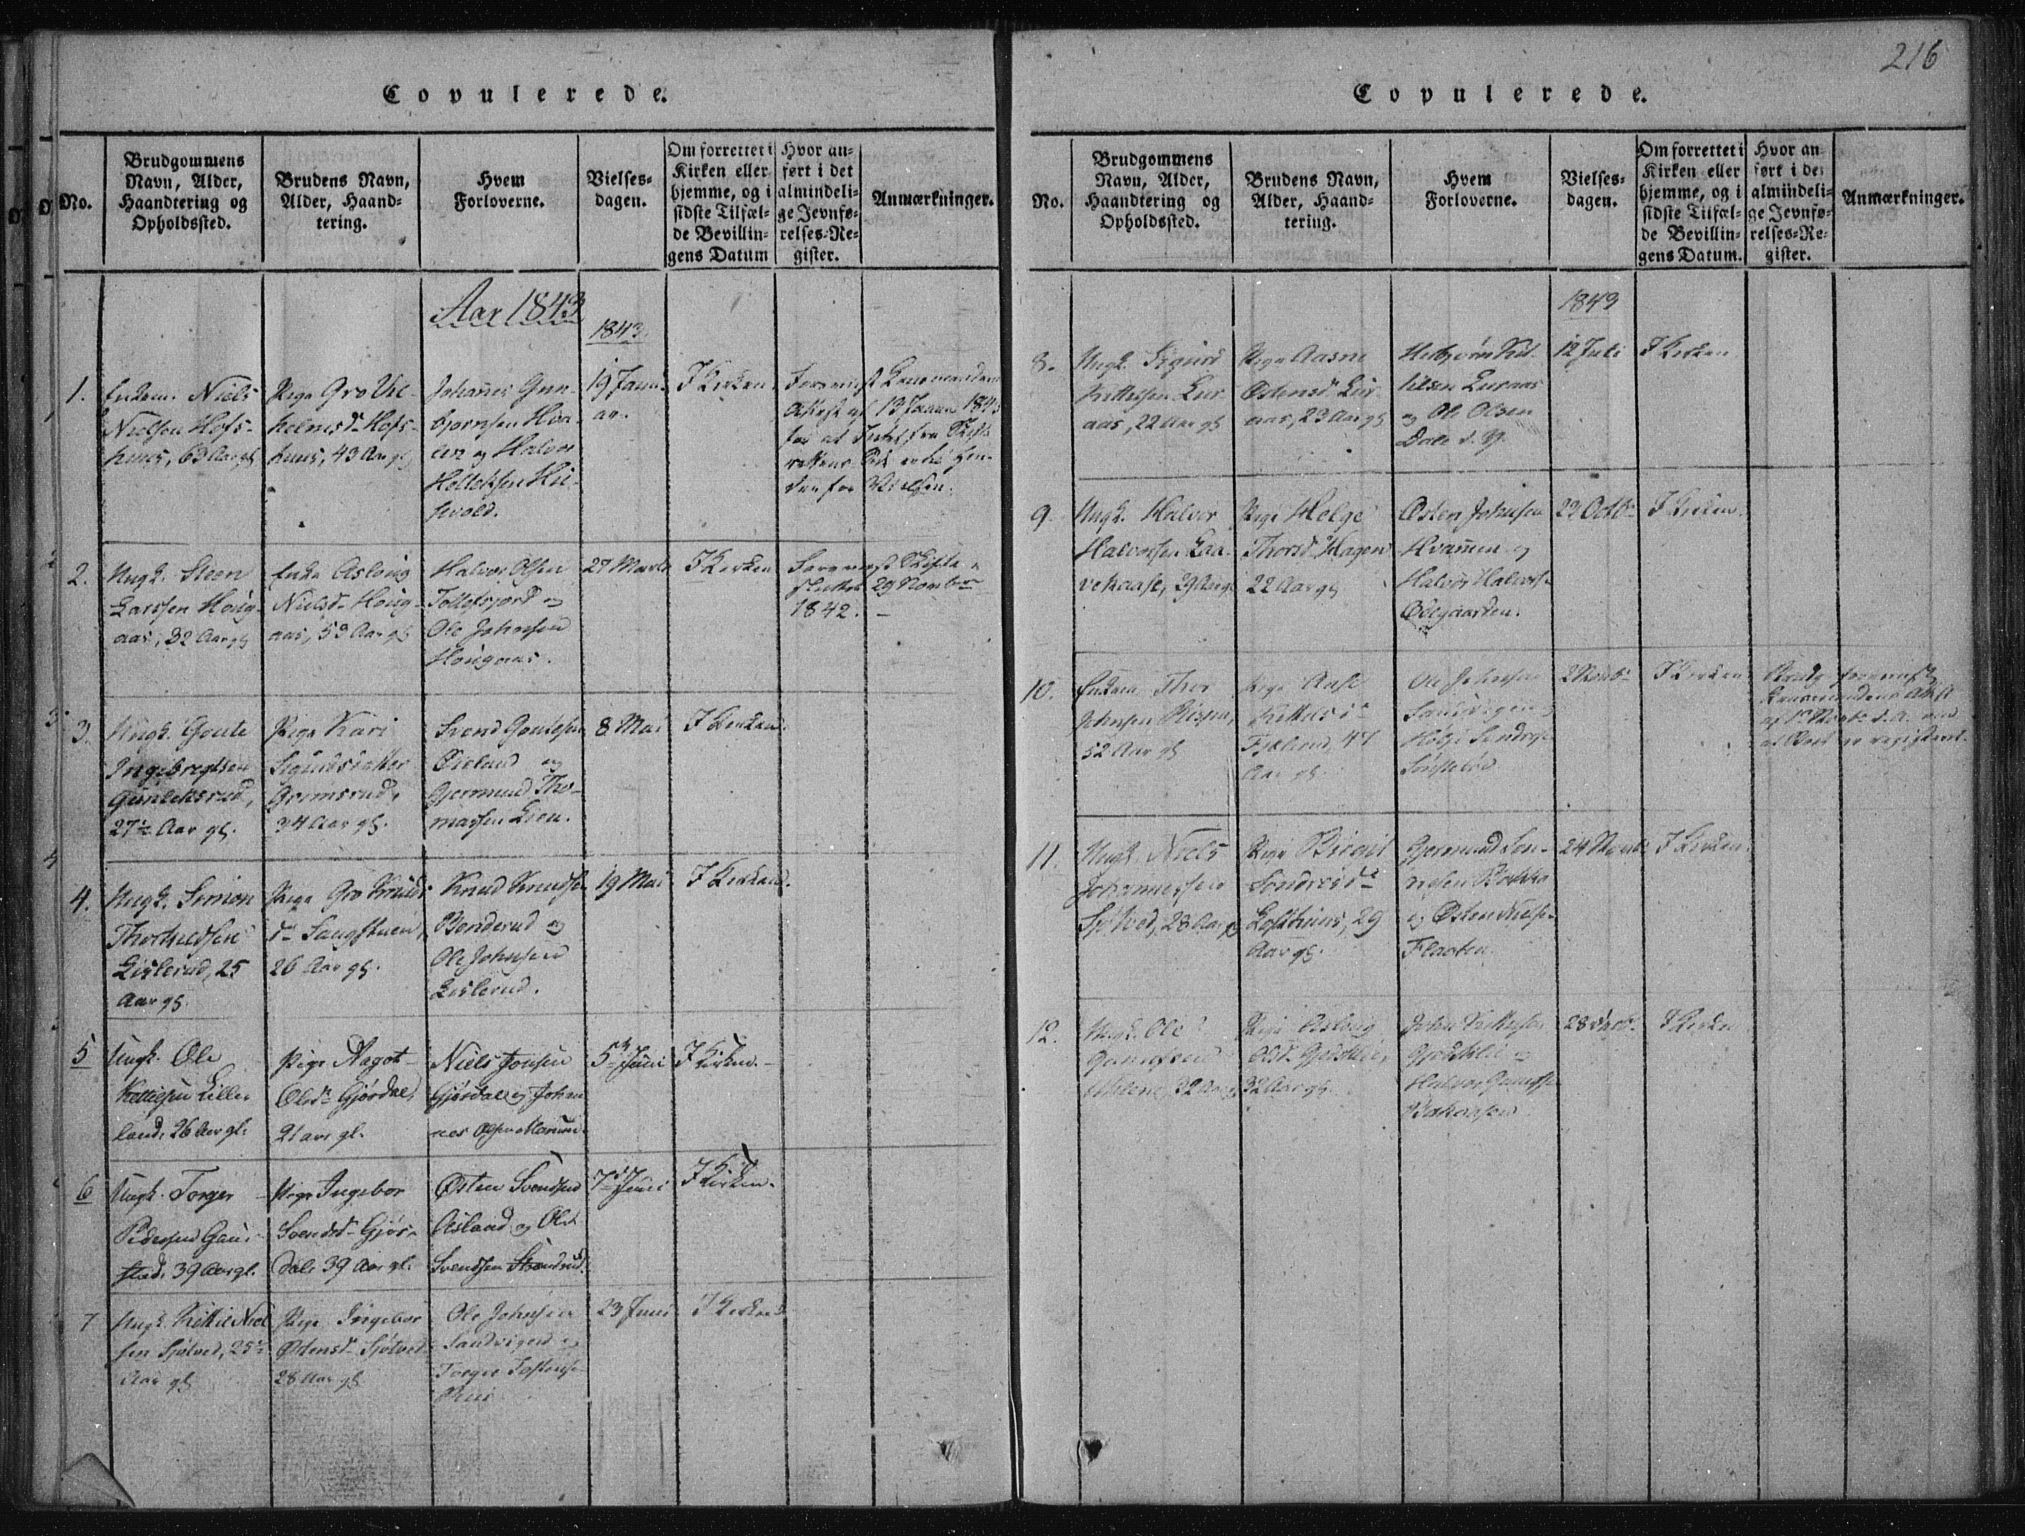 216
Copulerede.
No.
Brudgommens
Navn, Alder,
Haandtering og
Opholdssted.
Brudens Navn,
Alder, Haand-
tering.
Hvem
Forloverne.
Vielses-
dagen.
Om forrettet i
Kirken eller
hjemme, og i
sidste Tilfæl-
de Bevillin-
gens Datum
Hvor an-
ført i det
almindeli-
ge Jevnfø-
relses-Re-
gister.
Anmærkninger.
Aar 1843
1843.
1.
Enkem. Niels
Nielsen Hofs-
huus, 63 Aar gl
Pige Gro Vil-
helmsd. Hofs-
huus, 43 Aar gl
Johanes Gun-
bjørnsen
og Halvor
19 Janu-
ar.
I Kirken.
Forevist
Attest af 13 Janu 1843
for at Intet fra Skifte
rettens Side er til Hin-
der for Vielsen.
2.
Ungk. Steen
Larssen Houg-
aas, 32 Aar gl
Enke Asloug
Nielsd. Houg-
aas, 53 Aar gl
Halvor Olsen
Tollefsjord og
Ole Johnsen
Hougaas.
27 Marts
I Kirken
Forevist Skifte-
sluttet 29 Novbr
1842.
3.
Ungk. Goute
Ingebregtsen
Gunleiksrud,
27½ Aar gl.
Pige Kari
Sigurdsdatter
Grimsrud,
34 Aar gl.
Svend Goutesen
Øisland og
Gjermund Tho-
massen Lien.
8 Mai
I Kirken.
4.
Ungk. Simon
Thortuldsen
Lislerud, 25
Aar gl.
Pige Gro Knuds
d.
26 Aar gl.
Knud Knudsen
Benderud og
Ole Johnsen
Lislerud.
19 Mai
I Kirken.
5
Ungk. Ole
Kittilsen Lille-
land, 26 Aar gl.
Pige Aagot
Olsd. Gjørdal,
21 aar gl.
Niels Jonsen
Gjørdal og Johan
nes Olsen
5 Juni
I Kirken.
6
Ungk. Torger
Pedersen Gau-
stad, 39 Aar gl.
Pige Ingebor
Svendsd. Gjør-
dal, 39 Aar gl.
Østen Svendsen
Aasland og Ole
Svendsen Strandrud.
7 Juni
I Kirken.
7
Ungk. Kittil Niel
sen Sjøtved, 25½
Aar gl
Pige Ingebor
Østensd. Sjøtved
28 Aar gl
Ole Johnsen
Sandvigen og
Torger Tostensen
Rui
23 Juni
I Kirken
Copulerede.
No.
Brudgommens
Navn, Alder,
Haandtering og
Opholdssted.
Brudens Navn,
Alder, Haand-
tering.
Hvem
Forloverne.
Vielses-
dagen.
Om forrettet i
Kirken eller
hjemme, og i
sidste Tilfæl-
de Bevillin-
gens Datum.
Hvor an-
ført i det
almindeli-
ge Jevnfø-
relses-Re-
gister.
Anmærkninger.
1843
8.
Ungk. Sigurd
Kittilsen Lur
aas, 22 Aar gl
Pige Aasne
Østensd. Lur
aas, 23 Aar gl
Herbjørn Kit
tilsen Luraas
og Ole Olsen
Dale d. Y.
12 Juli
I Kirken
9.
Ungk. Halvor
Halvorsen
29 Aar gl
Pige Helge
Thorsd. Hagen
22 Aar gl
Østen Johnsen
Hvammen og
Halvor Halvors.
Ødegaarden.
22 Octb.
I Kirken.
10.
Enkem Thor
Johnsen
52 Aar gl
Pige Aase
Kittilsd.
47
Aar gl.
Ole Johnsen
Sandvigen og
2 Novb.
I Kirken
11.
Ungk. Niels
Johannessen
Sjøtved, 28 Aar gl
Pige Birgit
Sondresd.
Lofthuus, 29
Aar gl.
Gjermund Son-
dresen Bakka
og Østen Nielse-
Flaaten.
24 Novb.
I Kirken.
12.
Ungk. Ole
32 Aar gl
Pige Aslaug
Olsd.
32 Aar gl.
John Kittilsen
og
Halvor
28 Decb.
I Kirken